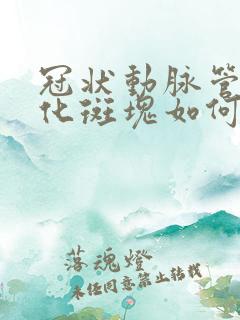 冠状動脉管
化斑塊如何
落魂燈
未任同意禁止转載